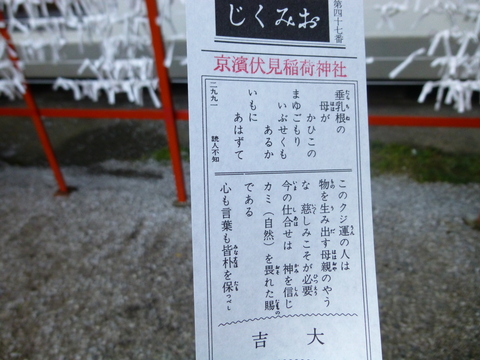 第四十七番
おみくじ
京濱伏見稲荷神社
垂乳根の
母が かひこの
まゆごもり
いぶせくも
あるか
いもに
あはずて
二九九一 読人不知
このクジ運の人は
物を生み出す母親のやう
な 慈しみこそが必要
今の仕合せは 神を信じ
カミ(自然)を畏れた賜
である
心も言葉も皆朴を保
大吉